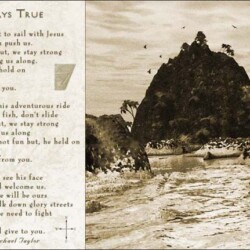 ays True
t to sail with Jesus
 push us.
ut, we stay strong
g us along.
hold on
you.
is adventurous ride
fish, don't slide
ut, we stay strong
us along
not fun but, he hold on
from you.
see his face
d welcome us.
e will be ours
lk down glory streets
e need to fight
l give to you.
chael Taylor